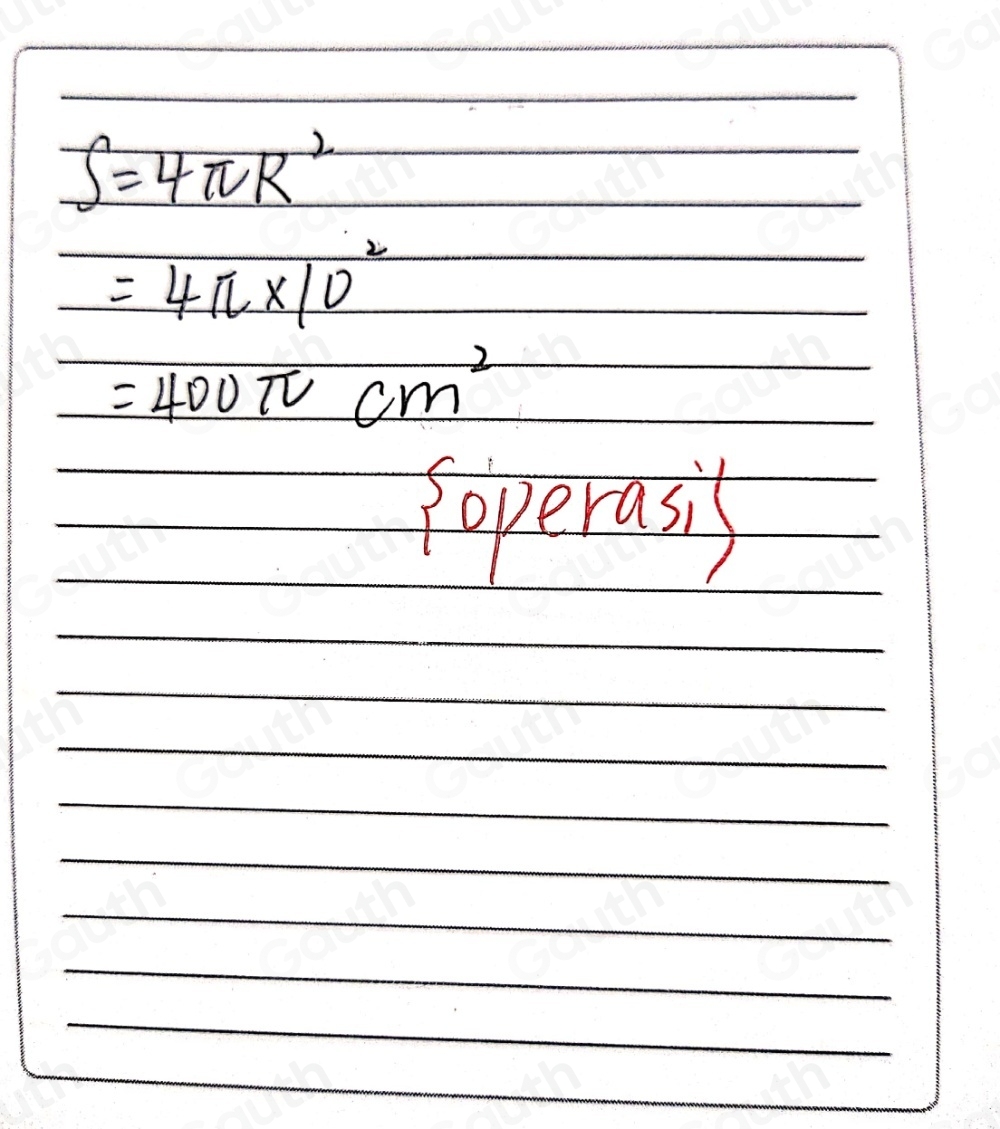 S=4πR²
=4π×10²
=400π cm²
{operasi}